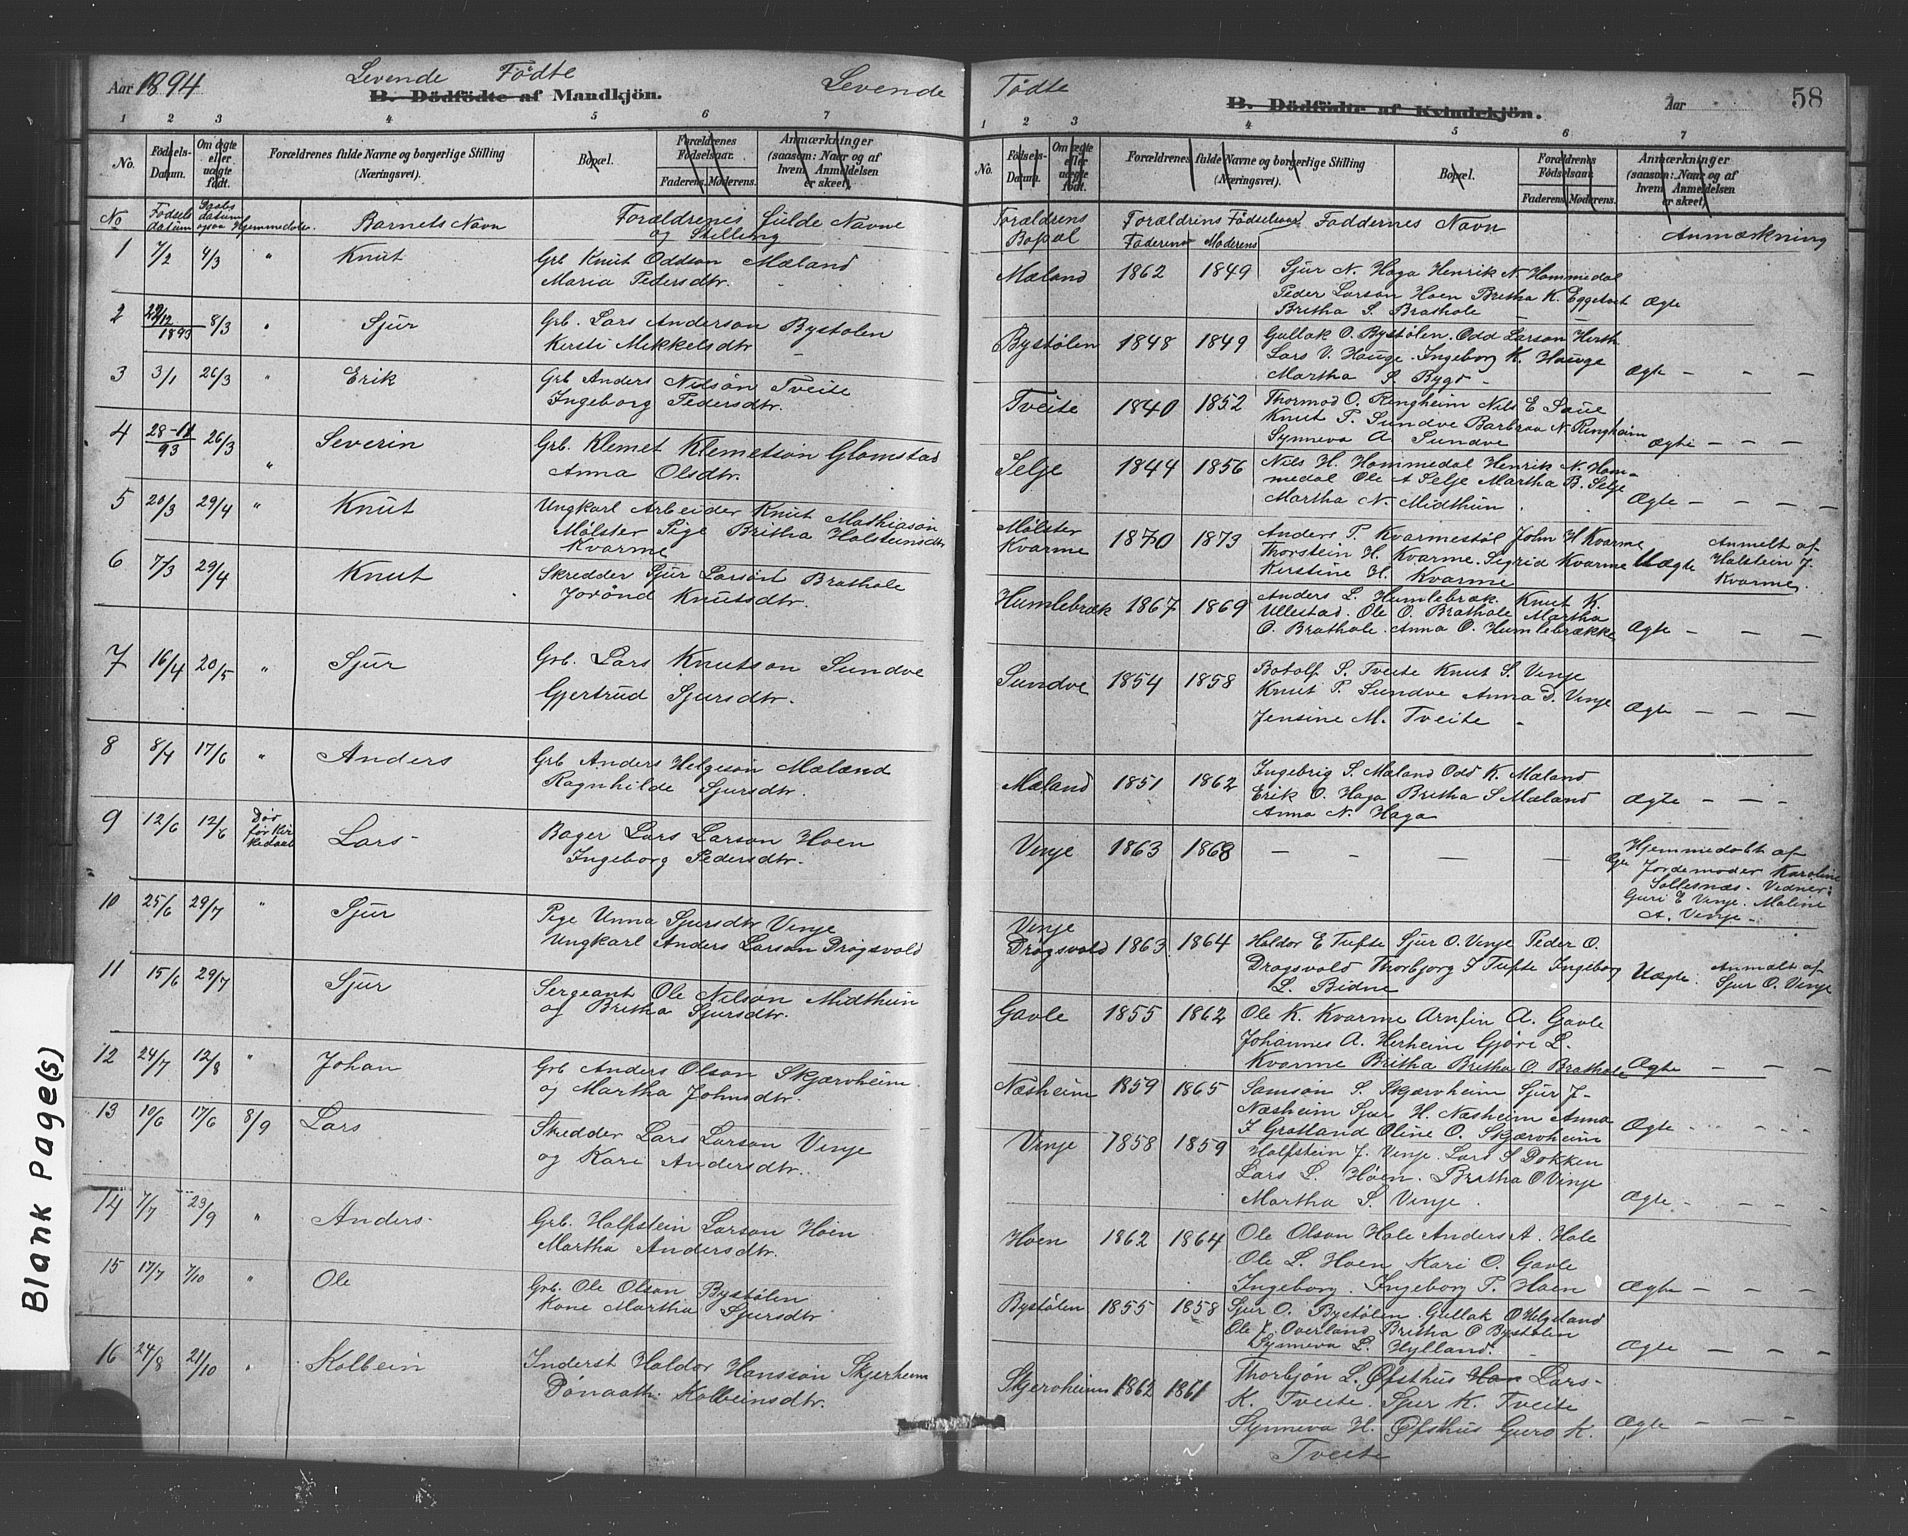 Aar 1894
Levende Födte
B. Dödfödte af Mandkjön.
Levende
1 2 3 4 5 6 7
No.
Födsels-Datum.
Om ægte eller uægte födt.
Forældrenes fulde Navne og borgerlige Stilling (Næringsvei).
Bopæl.
Forældrenes Födselsaar.
Faderens. Moderens.
Anmærkninger (saasom: Naar og af hvem Anmeldelsen er skeet).
No Födsels datum Daabs datum Hjemmedøbt. Barnets Navn Forældrenes Fulde Navne og Stilling
1 7/2 4/3 " Knut Grb Knut Oddson Mæland
Maria Pedersdtr.
2 22/12 1893 8/3 " Sjur Grb. Lars Anderson Bystølen
Kirsti Mikkelsdtr
3 3/1 26/3 " Erik Grb Anders Nilsön Tveite
Ingeborg Pedersdtr.
4 28-11 93 26/3 " Severin Grb. Klemet Klemetsön Glomstad
Anna Olsdtr.
5 20/3 29/4 " Knut Ungkarl Arbeider Knut Mathiasön
Mølster Pige Britha Holsteinsdtr
Kvarme
6 7/3 29/4 Knut Skredder Sjur Larsön Brathole
Jorönd Knutsdtr.
7 16/4 20/5 " Sjur Grb. Lars Knutson Sundve
Gjertrud Sjursdtr.
8 8/4 17/6 " Anders Grb Anders Helgesön Mæland
Ragnhilde Sjursdtr.
9 12/6 12/6 Død før Kirkedaab Lars Bager Lars Larson Hoen
Ingeborg Pedersdtr.
10 25/6 29/7 " Sjur Pige Unna Sjursdtr Vinje
Ungkarl Anders Larson Drøgsvold
11 15/6 29/7 Sjur Sergeant Ole Nilson Midthun
og Britha Sjursdtr.
12 24/7 12/8 " Johan Grb Anders Olson Skjærvheim
og Martha Johnsdtr.
13 10/6 17/6 8/9 Lars Skredder Lars Larson Vinje
og Kari Andersdtr.
14 7/7 23/9 " Anders Grb. Halfstein Larson Höen
Martha Andersdtr
15 17/7 7/10 " Ole Grb. Ole Olson Bystølen
Kone Martha Sjursdtr
16 24/8 21/10 " Kolbein Inderst Haldor Hansson Skjerheim
Kolbeinsdtr.
Blank Page(s)
Födte
B. Dödfödte af Kvindekjön.
Aar
58
1 2 3 4 5 6 7
No.
Födsels-Datum.
Om ægte eller uægte födt.
Forældrenes fulde Navne og borgerlige Stilling (Næringsvei).
Bopæl.
Forældrenes Födselsaar.
Faderens. Moderens.
Anmærkninger (saasom: Naar og af hvem Anmeldelsen er skeet).
Forældrens Bopæl Forældrins Födselsaar Faderens Moderens Faddernes Navn Anmærkning
Mæland 1862 1849 Sjur N. Haga Henrik N. Hommedal
Peder Larson Hoen Britha K. Eggetvet Ægte
Britha S. Brathole
Bystølen 1848 1849 Gullak O. Bystølen. Odd Larson Herth
Lars V. Hauge. Ingeborg K. Hauge
Martha S. Bygd - Ægte - - -
Tveite 1840 1852 Thormod O. Ringheim Nils E Saue
Knut P. Sundve Barbraa N. Ringheim
Synneva A. Sundve Ægte - - -
Selje 1844 1856 Nils H. Hommedal Henrik N. Hom-
medal Ole A Selje Martha B. Selje
Martha N. Midthun Ægte - - -
Mølster Kvarme 1870 1873 Anders P. Kvarmestøl John H Kvarme
Thorstein H. Kvarme. Sigrid Kvarme Uægte Anmelt af Holstein J. Kvarme
Kirstine H. Kvarme
Humlebræk 1867 1869 Anders L. Humlebræk. Knut K.
Ullestad. Ole O. Brathole Martha
O. Brathole. Anna O. Humlebrække Ægte - - -
Sundve 1854 1858 Botolf S. Tveite Knut S. Vinje
Knut P. Sundve Anna D. Vinje
Jensine M. Tveite - Ægte - - -
Mæland 1851 1862 Ingebrig S. Mæland Odd K. Mæland
Erik O. Haga Britha S Mæland
Anna N. Haga Ægte - - -
Vinje 1863 1868 - - - - Hjemmedøbt af
Jordemoder Karoline
Vedner:
Guri E Vinje. Maline
A. Vinje -
Vinje Drøgsvold 1863 1864 Haldor E Tufte Sjur O. Vinje Peder O.
Drøgsvold Thorbjorg J Tufte Ingeborg
L. Bidne Uægte. Anmælt af Sjur O. Vinje
Gavle 1855 1862 Ole K. Kvarme Arnfin A. Gavle
Johannes A. Herheim Gjøri L.
Kvarme Britha Britha O. Brathole Ægte - - -
Næsheim 1859 1865 Samson S. Skjærvheim Sjur J-
Næsheim Sjur H. Næsheim Anna
J Grotland Oline O. Skjærvheim Ægte
Vinje 1858 1859 Halfstein J. Vinje Lars S Dokken
Lars L. Höen. Britha O Vinje
Martha S. Vinje. Ægte - - -
Hoen 1862 1864 Ole Olson Hole Anders A. Hole
Ole L. Hoen Kari O. Gavle
Ingeborg. Ingeborg P. Hoen Ægte - - -
Bystølen 1855 1858 Sjur O. Bystølen. Gullak O Helgeland
Ole J. Overland Britha O Bystølen
Synneva L. Hylland. Ægte - - -
Skjervheim 1862 1861 Thorbjøn L. Øfsthus Han Lars-
K. Tveite. Sjur K. Tveite
Synneva H. Øfsthus Guro K.
Tveite Ægte - - -